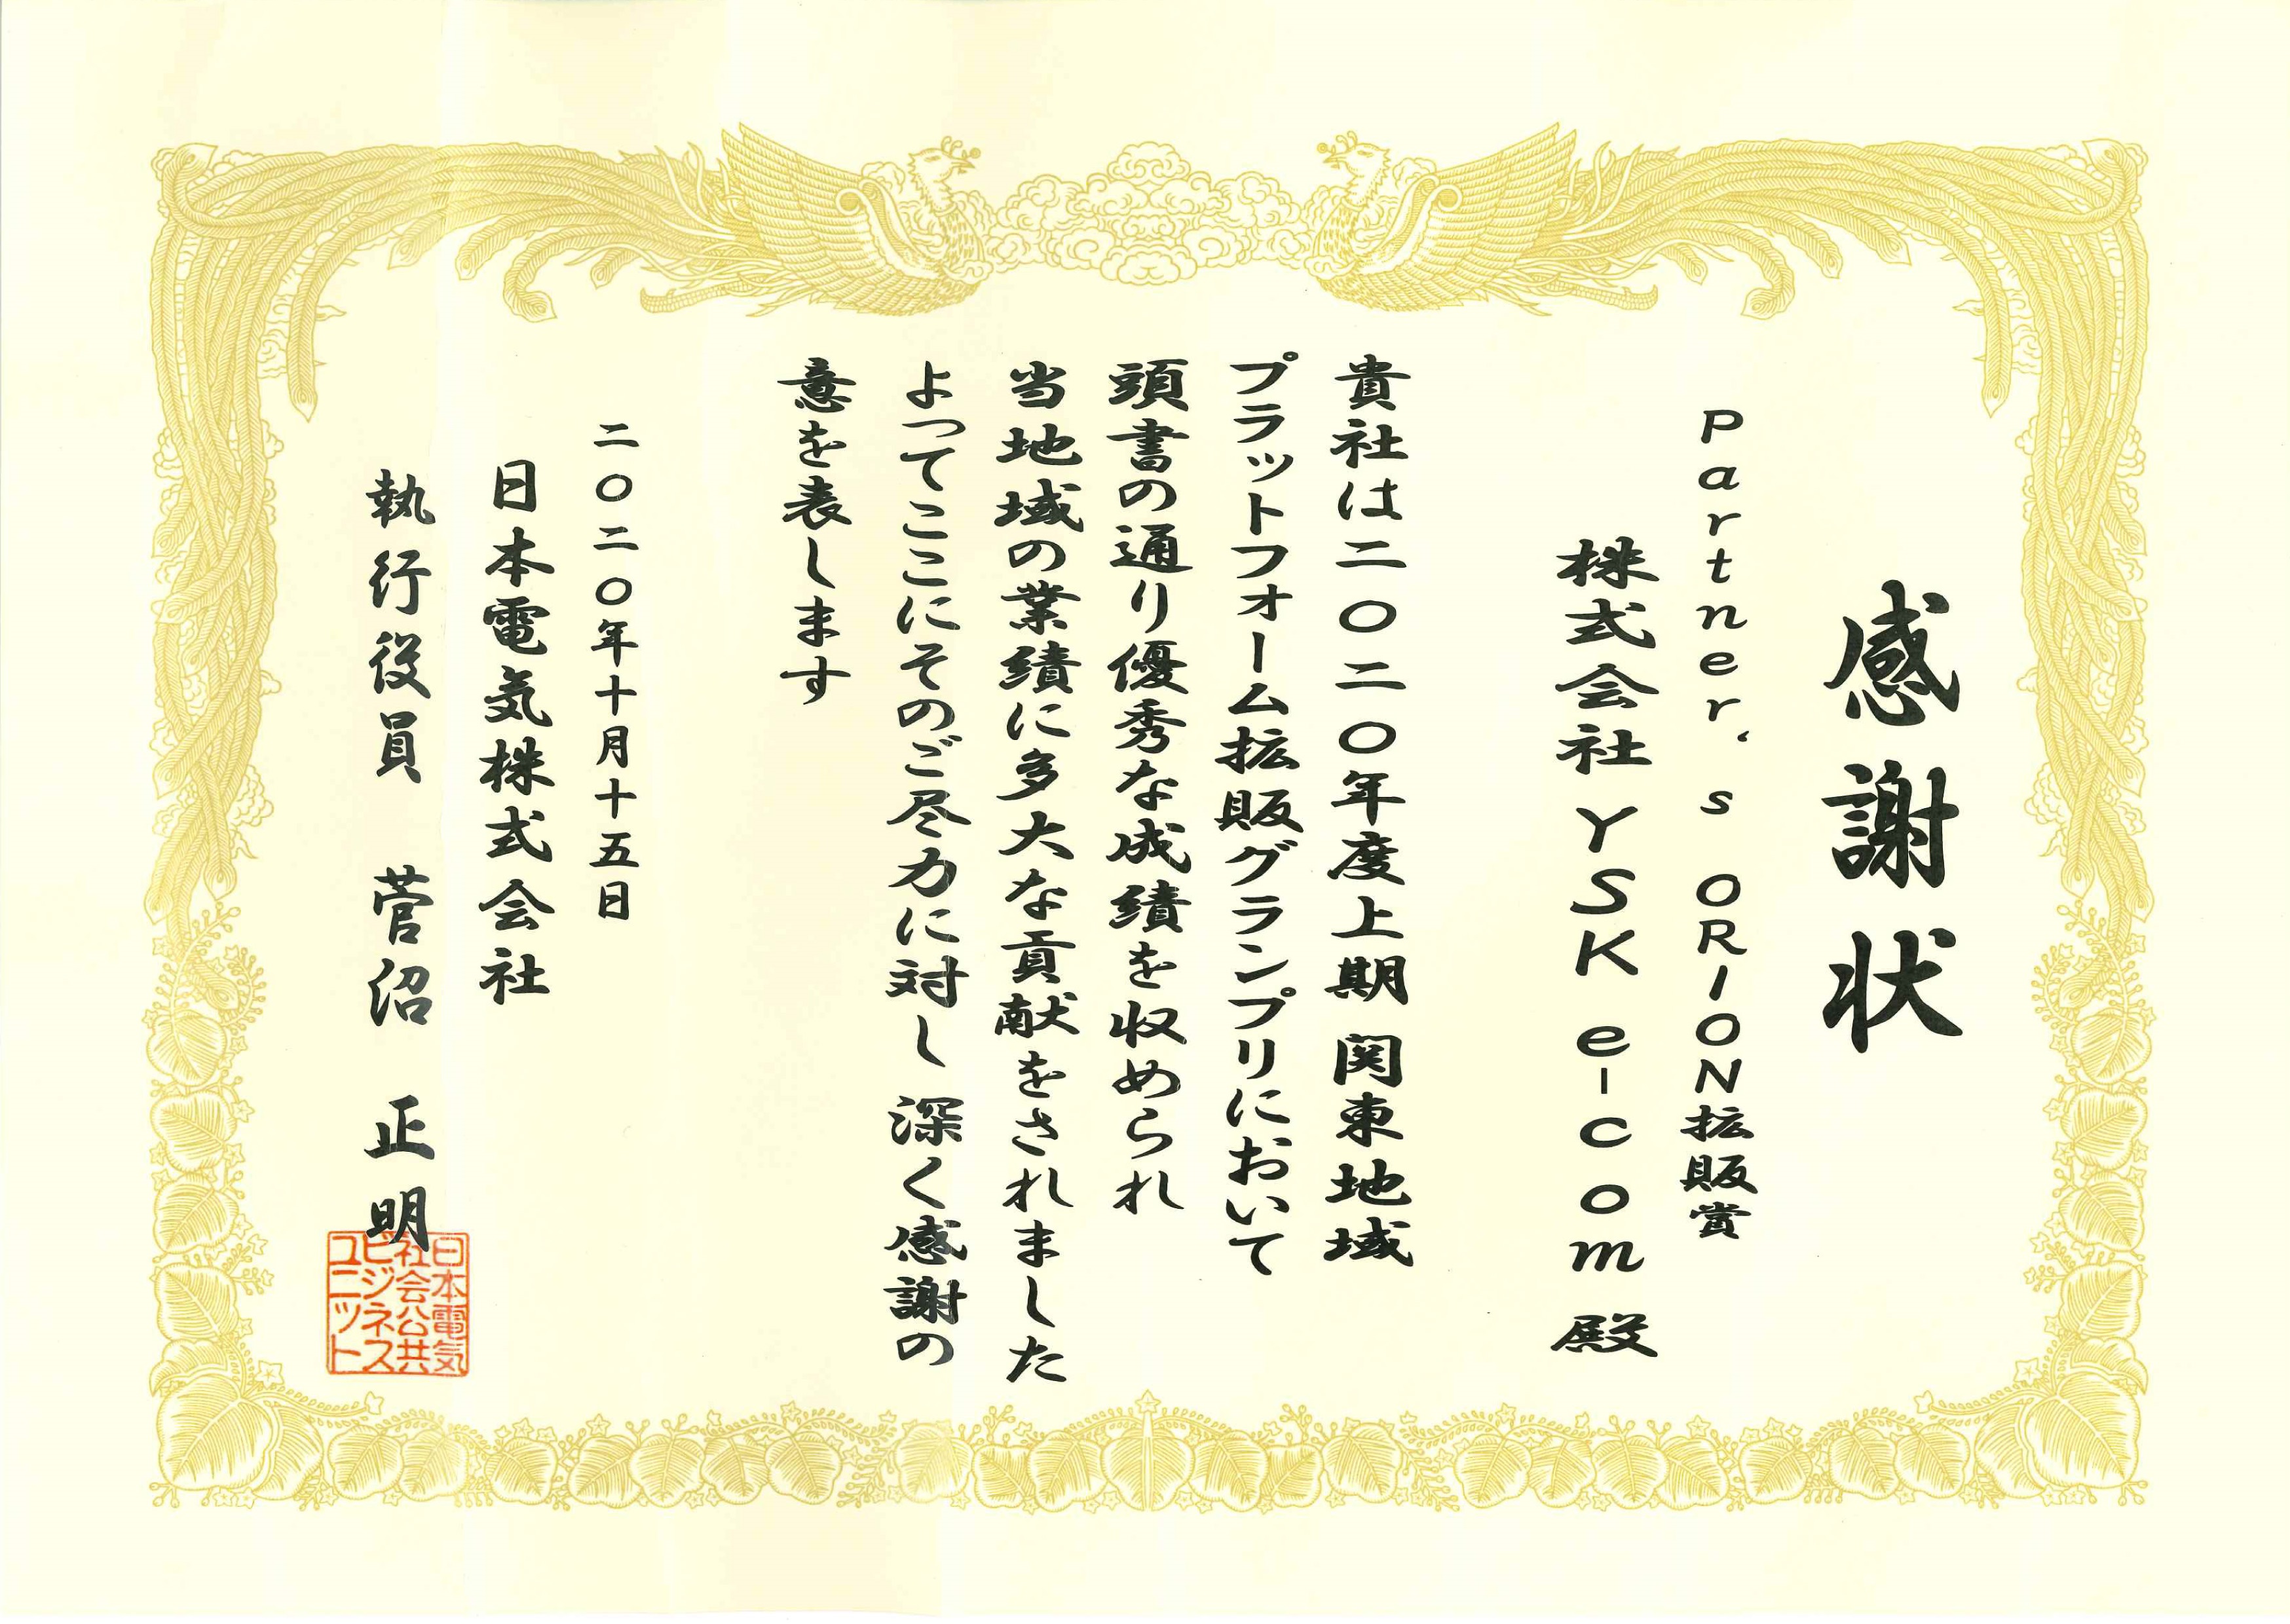 感謝状
Partner's ORION拡販賞
株式会社YSK e-com 殿
貴社は二〇二〇年度上期 関東地域
プラットフォーム拡販グランプリにおいて
頭書の通り優秀な成績を収められ
当地域の業績に多大な貢献をされました
よってここにそのご尽力に対し 深く感謝の
意を表します
二〇二〇年十月十五日
日本電気株式会社
執行役員 菅沼 正明
日本電気
社会公共
ビジネス
ユニット